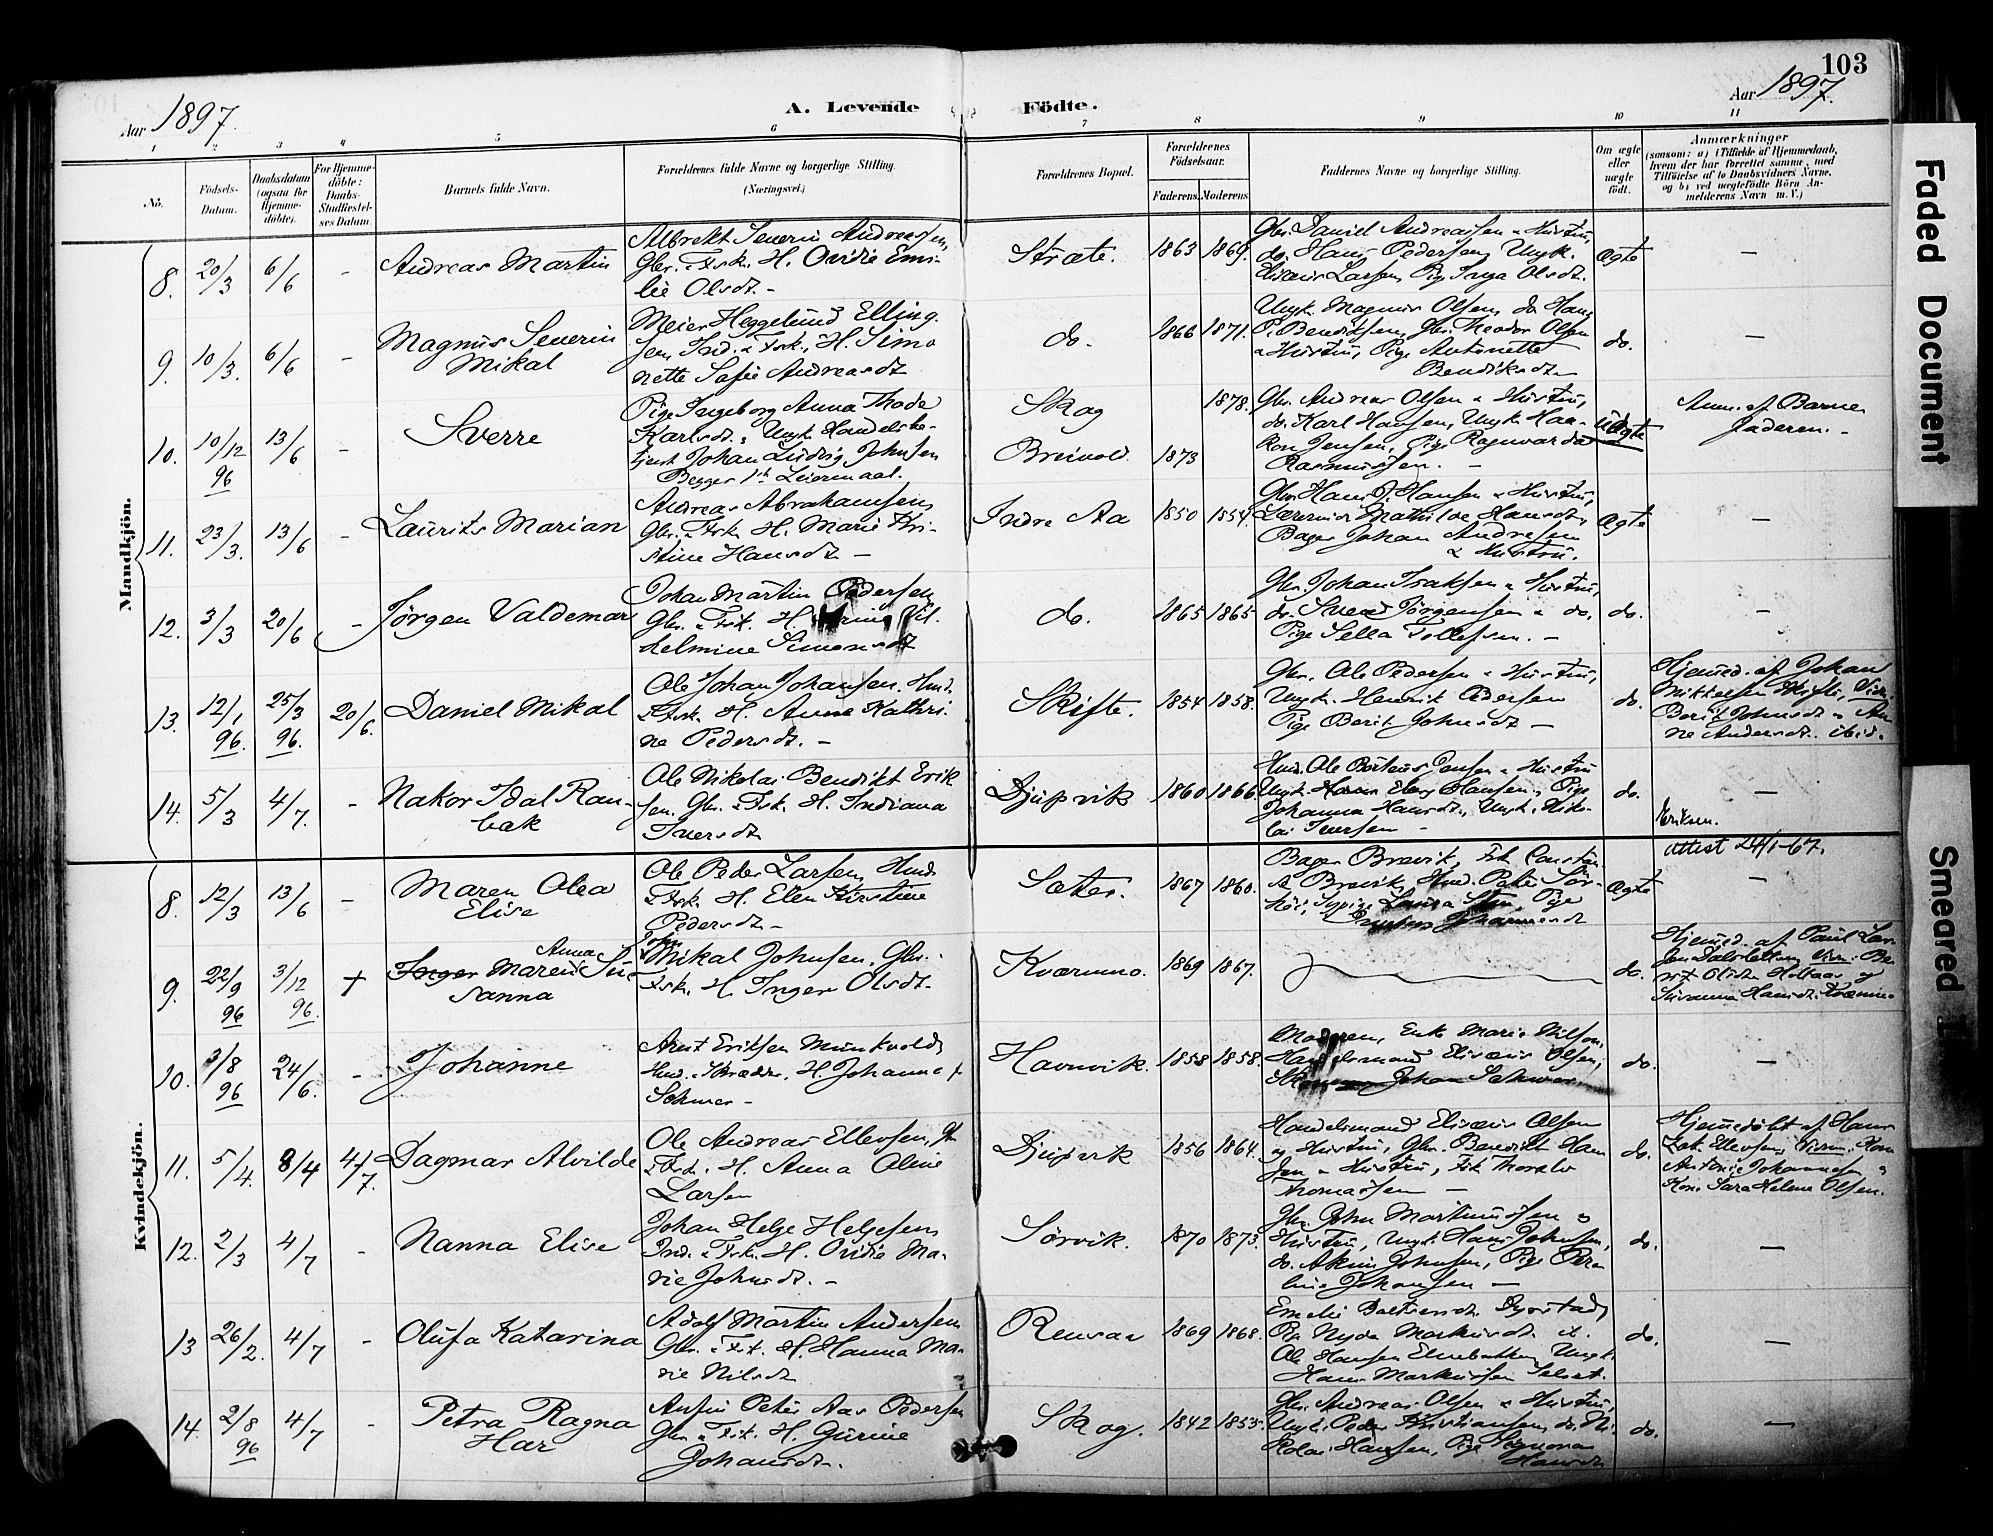 103
Aar 1897.
A. Levende Födte.
Aar 1897.
1 2 3 4 5 6 7 8 9 10 11
No.
Födsels-Datum.
Daabsdatum (ogsaa for Hjemme-döbte).
For Hjemme-döbte: Daabs-Stadfæstel-ses Datum.
Barnets fulde Navn.
Forældrenes fulde Navne og borgerlige Stilling. (Næringsvei.)
Forældrenes Bopæl.
Forældrenes Födselsaar.
Faderens. Moderens.
Faddernes Navne og borgerlige Stilling.
Om ægte eller uægte födt.
Anmærkninger
(saasom: a) i Tilfælde af Hjemmedaab, hvem der har forrettet samme, med Tilföielse af to Daabsvidners Navne, og b) ved uægtefödte Börn An-melderens Navn m. V.)
Mandkjön.
8. 20/3 6/6 - Andreas Martin
Albrekt Severin Andreassen,
Gbr. & Fsk. H. Ovidie Emi-
lie Olsdt. -
Stræte. 1863 1869.
Gbr. Daniel Andreassen & Hustru,
do. Hans Pedersen, Ungk.
Elisæus Larsen, Pige Inga Olsdt.
Ægte -
9. 10/3. 6/6 - Magnus Severin
Mikal
Meier Heggelund Elling-
sen, Ind. & Fsk., H. Simo
nette Sofie Andreasdt
do. 1866 1871.
Ungk. Magnus Olsen, do Hans
P. Bendiksen, Gbr. Theodor Olsen
& Hustru, Pige Antonette
Bendiksdt.
do. -
10. 10/12 96 13/6 - Sverre
Pige Ingeborg Anna Thode
Karlsdt. & Ungk. Handelsbe-
tjent Johan Ludvig Johnsen
Begges 1ste Leiermaal.
Skog 1878.
Breivold. 1873
Gbr. Andreas Olsen & Hustru,
do. Karl Hansen, Ungk. Haa-
kon Jensen, Pige Ragnvarda
Rasmussen. -
Uægte
Anm. af Barnef
faderen. -
11. 23/3. 13/6 - Laurits Marian
Andreas Abrahamsen,
Gbr. & Fsk. H. Marie Kri-
stine Hansdt. -
Indre Aa 1850 1854.
Gbr. Hans J. Hansen & Hustru,
Lærerinde Mathilde Hansdt,
Bager Johan Andresen
& Hustru.
Ægte -
12. 3/3 20/6 - Jörgen Valdemar
Johan Martin Pedersen
Gbr. & Fsk. H. Vil-
helmine Simonsdt
do. 1865 1865
Gbr. Johan Isaksen & Hustru,
do. Svend Jörgensen & do,
Pige Sella Tollefsen. -
do. -
13. 12/1 96. 25/3 96. 20/6. Daniel Mikal
Ole Johan Johansen. Hmd.
& Fsk. H. Anne Kathri-
ne Pedersdt. -
Skifte. 1854 1858.
Gbr. Ole Pedersen & Hustru,
Ungk. Henrik Pedersen
Pige Berit Johnsdt -
do.
Hjemmed. af Johan
Mikkelsen Skifte, Vidn:
Berit Johnsdt & An-
ne Andersdt. ibid.
14. 5/3 4/7. - Hakor Idal Ran-
bak
Ole Nikolai Bendikt Erik
sen. Gbr. & Fsk. H. Indiana
Iversdt.
Djupvik 1860 1866
Hmd. Ole Berteus Jensen & Hustru
Ungk. Hansen, Pige
Johanna Hansdt., Ungk. Niko-
lai Iversen -
do. -
Eriksen.
attest 24/1-67.
Kvindekjön.
8. 12/3 13/6 - Maren Olea
Elise
Ole Peder Larsen, Hmd.
& Fsk. H. Elen Kirstine
Pedersdt. -
Sæter. 1867 1860.
Bager Brevik, Frk. Constan-
se Brevik, Hmd. Peter Sör-
Laura Pige
Johannesdt
Ægte -
9. 22/9 96 3/12 96. † Anna
Inger Maren Su-
sanna
John
Mikal Johnsen. Gbr. &
Fsk. H. Inger Olsdt.
Kværnmo. 1869 1867.
do.
Hjemmed. af Paul Lar-
sen Dalsletten, Vidn: Be-
rit Olsdt. Holtaas og
Susanna Hansdt. Kværnmo
10. 3/8 96 24/6. - Johanne
Arnt Eriksen Munkvold,
Hmd. & Skrædder. H. Johanne f.
Schmer -
Havnvik. 1858 1858.
Moderen, Enke Marie Nilsen,
Handelsmand Elisæus Olsen,
Johan
do. -
11. 5/4. 8/4 4/7. Dagmar Alvilde
Ole Andreas Ellevsen, Gbr
& Fsk. H. Anna Oline
Larsen
Djupvik 1856 1864.
Handelsmand Elisæus Olsen
og Hustru, Gbr. Benedikt Han
sen & Hustru, Frk. Thoralv
Thomassen -
do.
Hjemmedöbt af Hans
Zak. Ellevsen, Vidn: Kone
Antonie Johannesen &
Kone Sara Helene Olsen.
12. 2/3 4/7 - Nanna Elise
Johan Helge Helgesen,
Ind. & Fsk. H. Ovidie Ma-
rie Johnsdt. -
Sörvik. 1870 1873.
Gbr. John Martinussen &
Hustru, Ungk. Hans Johnsen,
do. Akim Johnsen, Pige Pere
line Johansen -
do. -
13 26/2. 4/7 - Olufa Katarina
Adolf Martin Andersen
Gbr. & Fsk. H. Hanna Ma-
rie Nilsdt
Rensaa 1869 1868.
Emelie Baltsersdt. Dyrstad,
Pige Nyda Markusdt. ib.
Ole Hansen Elvebakken, Ungk.
Hans Markussen Selset.
do. -
14. 2/8 96 4/7 - Petra Ragna
Har
Anfin Peter Aas Pedersen
Gbr. & Fsk. H. Gurine
Johansdt.
Skog. 1842 1853.
Gbr. Andreas Olsen & Hustru,
Ungk. Peder Kristiansen, do. Ni-
kolai Hansen, Pige Signora
Hansdt
do. -
Faded Document
Smeared